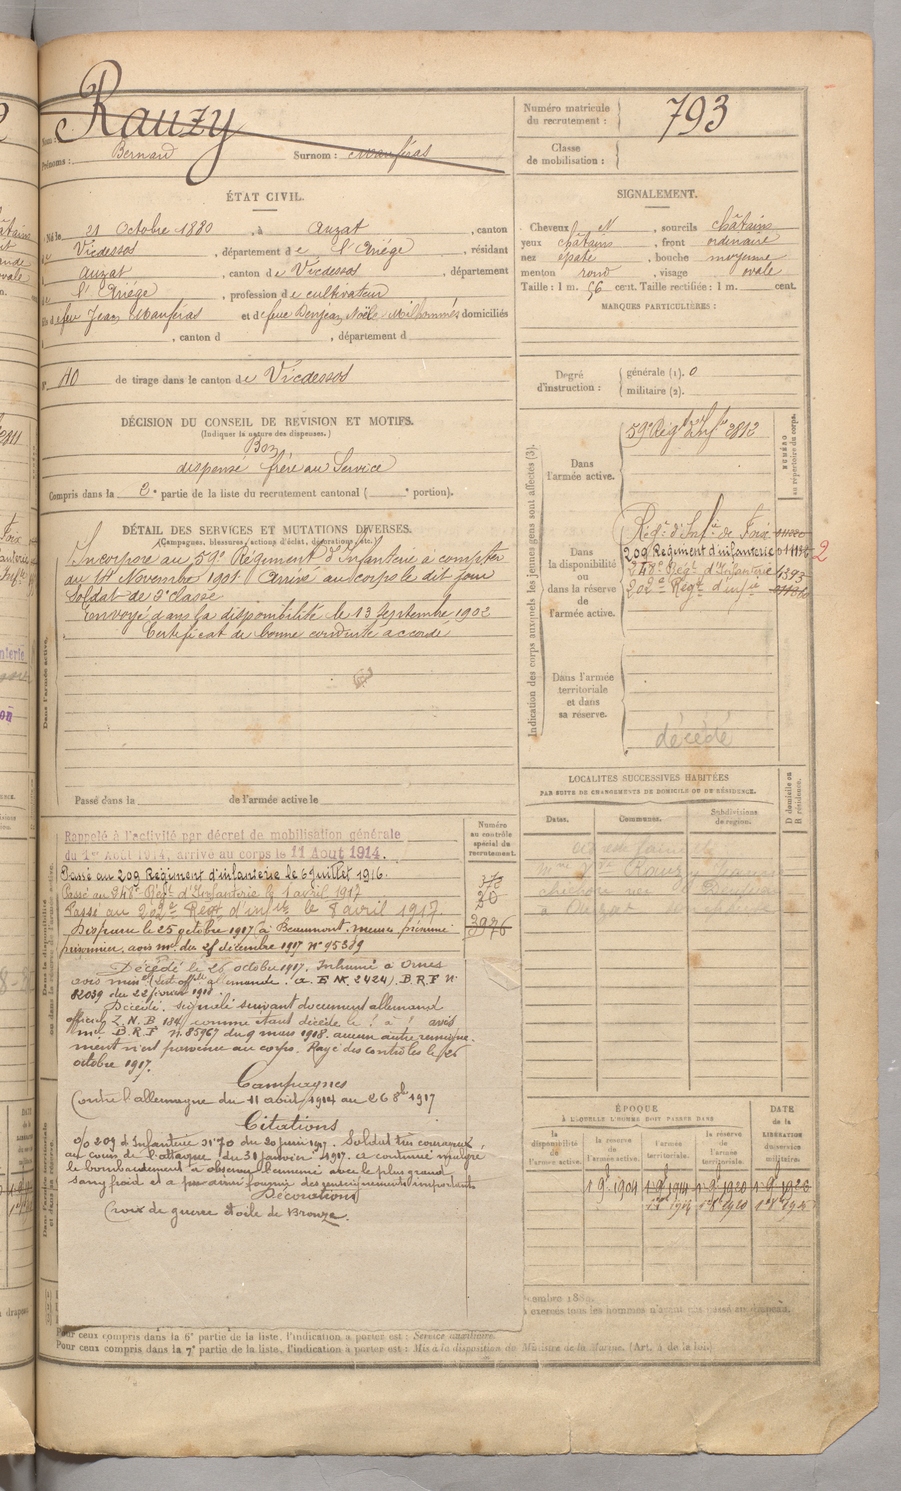 Rauzy
Nom :
Prénoms : Bernard Surnom : Maufras
Numéro matricule du recrutement : 793
Classe de mobilisation :
ÉTAT CIVIL.
Né le 21 Octobre 1880, à Auzat, canton
de Vicdessos, département de l'Ariége, résidant
à Auzat, canton de Vicdessos, département
de l'Ariége, profession de cultivateur
fils de feu Jean Maufras et de feue Denjean, Noële Milhommes domiciliés
à , canton d , département d
N° 40 de tirage dans le canton de Vicdessos
SIGNALEMENT.
Cheveux N, sourcils châtains
yeux châtains, front ordinaire
nez épaté, bouche moyenne
menton rond, visage ovale
Taille : 1 m. 56 cent. Taille rectifiée : 1 m. cent.
MARQUES PARTICULIÈRES :
Degré d'instruction :
générale (1). 0
militaire (2).
DÉCISION DU CONSEIL DE REVISION ET MOTIFS.
(Indiquer la nature des dispenses.)
Bon
dispensé frère au Service
Compris dans la 2e partie de la liste du recrutement cantonal ( e portion).
DÉTAIL DES SERVICES ET MUTATIONS DIVERSES.
(Campagnes, blessures, actions d'éclat, décorations, etc.)
Incorporé au 59e Régiment d'Infanterie à compter
du 14 Novembre 1901. Arrivé au corps le dit jour
Soldat de 2e classe
Envoyé dans la disponibilité le 13 Septembre 1902
Certificat de bonne conduite accordé
Dans l'armée active.
Passé dans la de l'armée active le
Indication des corps auxquels les jeunes gens sont affectés (3).
NUMÉRO au répertoire du corps.
Dans l'armée active.
59e Régt d'Infie 2812
Dans la disponibilité ou dans la réserve de l'armée active.
Régt d'Infie de Foix
209 Régiment d'infanterie
248e Régt d'Infanterie 4393
202e Régt d'infie
2
Dans l'armée territoriale et dans sa réserve.
décédé
LOCALITÉS SUCCESSIVES HABITÉES
PAR SUITE DE CHANGEMENTS DE DOMICILE OU DE RÉSIDENCE.
Dates. Communes. Subdivisions de région. D domicile ou R résidence.
Numéro au contrôle spécial du recrutement.
Rappelé à l'activité par décret de mobilisation générale
du 1er Août 1914, arrivé au corps le 11 Aout 1914.
Passé au 209 Régiment d'infanterie le 6 juillet 1916.
Passé au 248e Régt d'Infanterie le 1 avril 1917
Passé au 202e Régt d'infie le 8 avril 1917.
3976
Disparu le 25 octobre 1917 à Beaumont. Meuse présumé
prisonnier. avis mel du 28 décembre 1917 N° 95389
Décédé le 26 octobre 1917. Inhumé à Ornes
avis minel (list offlle allemande. a. E N. 2424). B.R.F n°
82039 du 22 février 1918.
Décédé. signalé suivant document allemand
officiel Z. N. B 184 comme étant décédé le ? à ? avis
mel B. R. F n. 85967 du 9 mars 1918. aucun autre renseigne-
ment n'est parvenu au corps. Rayé des contrôles le 26
octobre 1917.
Campagnes
Contre l'allemagne du 11 août 1914 au 26 8bre 1917
Citations
o/o 209 d'Infanterie N° 70 du 20 juin 1917. Soldat très courageux
au cours de l'attaque du 30 janvier 1917. a continué malgré
le bombardement à observer l'ennemi avec le plus grand
sang froid et a pu ainsi fournir des renseignements importants
Décorations
Croix de guerre étoile de Bronze.
ÉPOQUE
À LAQUELLE L'HOMME DOIT PASSER DANS
la disponibilité de l'armée active. la réserve de l'armée active. l'armée territoriale. la réserve de l'armée territoriale.
DATE de la LIBÉRATION du service militaire.
1 9bre 1904 1 9bre 1914 1 9bre 1920 1 9bre 1926
Pour ceux compris dans la 6e partie de la liste, l'indication à porter est : Service auxiliaire.
Pour ceux compris dans la 7e partie de la liste, l'indication à porter est : Mis à la disposition du Ministre de la Marine. (Art. 4 de la loi.)